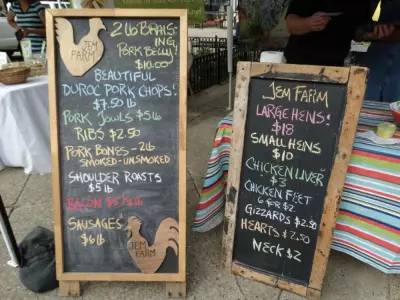 JEM
FARM
2 lb BRAIS-
ING
PORK BELLY!
$10.00
BEAUTIFUL
DUROC PORK CHOPS!
$7.50 lb
PORK JOWLS $5 lb
RIBS $2.50
PORK BONES - 2 lb
SMOKED - UNSMOKED
SHOULDER ROASTS
$5 lb
BACON
SAUSAGES
$6 lb
JEM
FARM
JEM FARM
LARGE HENS!
$18
SMALL HENS
$10
CHICKEN LIVER
$3
CHICKEN FEET
6 FOR $2
GIZZARDS $2.50
HEARTS $2.50
NECK $2